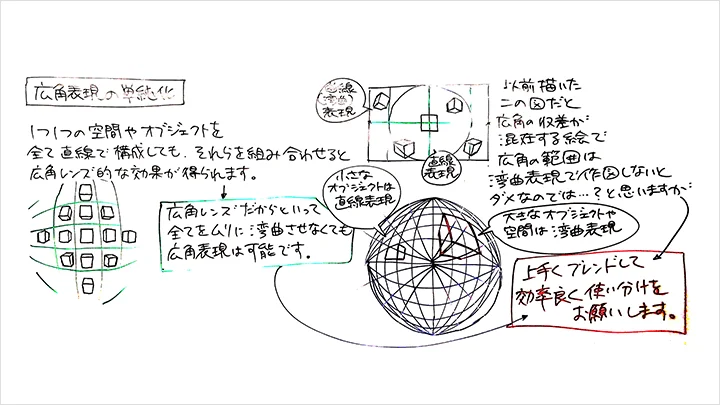 広角表現の単純化
1つ1つの空間やオブジェクトを
全て直線で構成しても、それらを組み合わせると
広角レンズ的な効果が得られます。
広角レンズだからといって
全てをムリに湾曲させなくても
広角表現は可能です。
(湾曲)
表現
直線
表現
以前描いた
この図だと
広角の収差が
混在する絵で
広角の範囲は
湾曲表現で作図しないと
ダメなのでは…?と思いますが…
小さな
オブジェクトは
直線表現
大きなオブジェクトや
空間は湾曲表現
上手くブレンドして
効率良く使い分けを
お願いします。